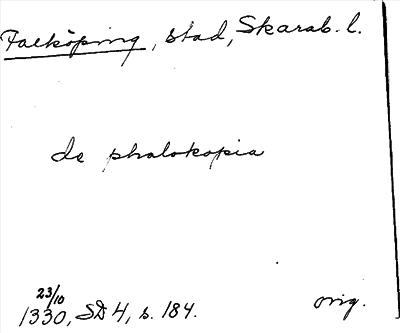 Falköping, stad, Skarab. l.
de phalokopia
23/10
1330, SD 4, s. 184. orig.